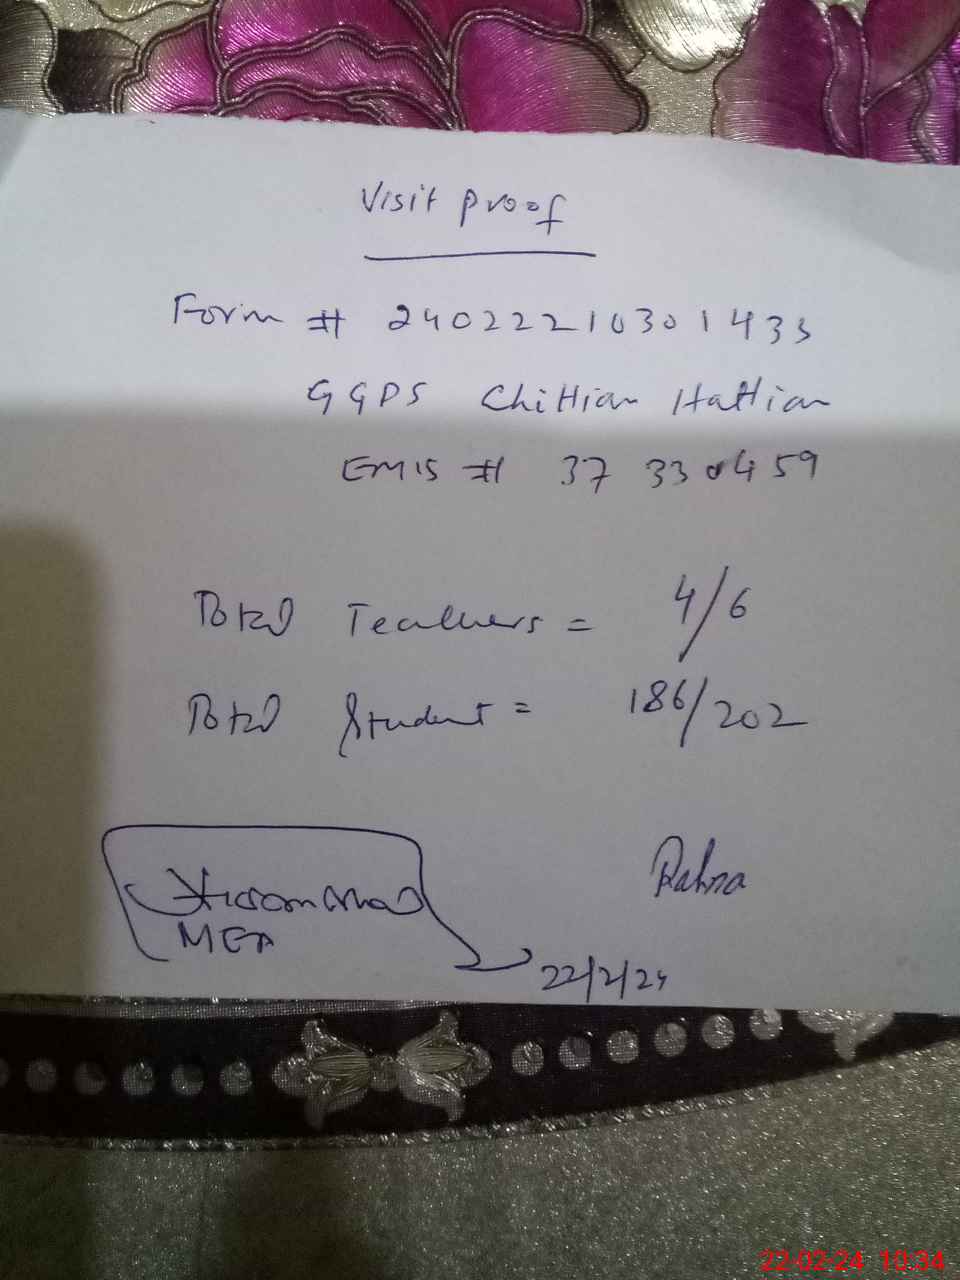 Visit proof
Form # 24022210301433
GGPS Chittian Hattian
EMIS # 37330459
Total Teachers = 4/6
Total Student = 186/202
MEA
22/2/24
22-02-24 10:34